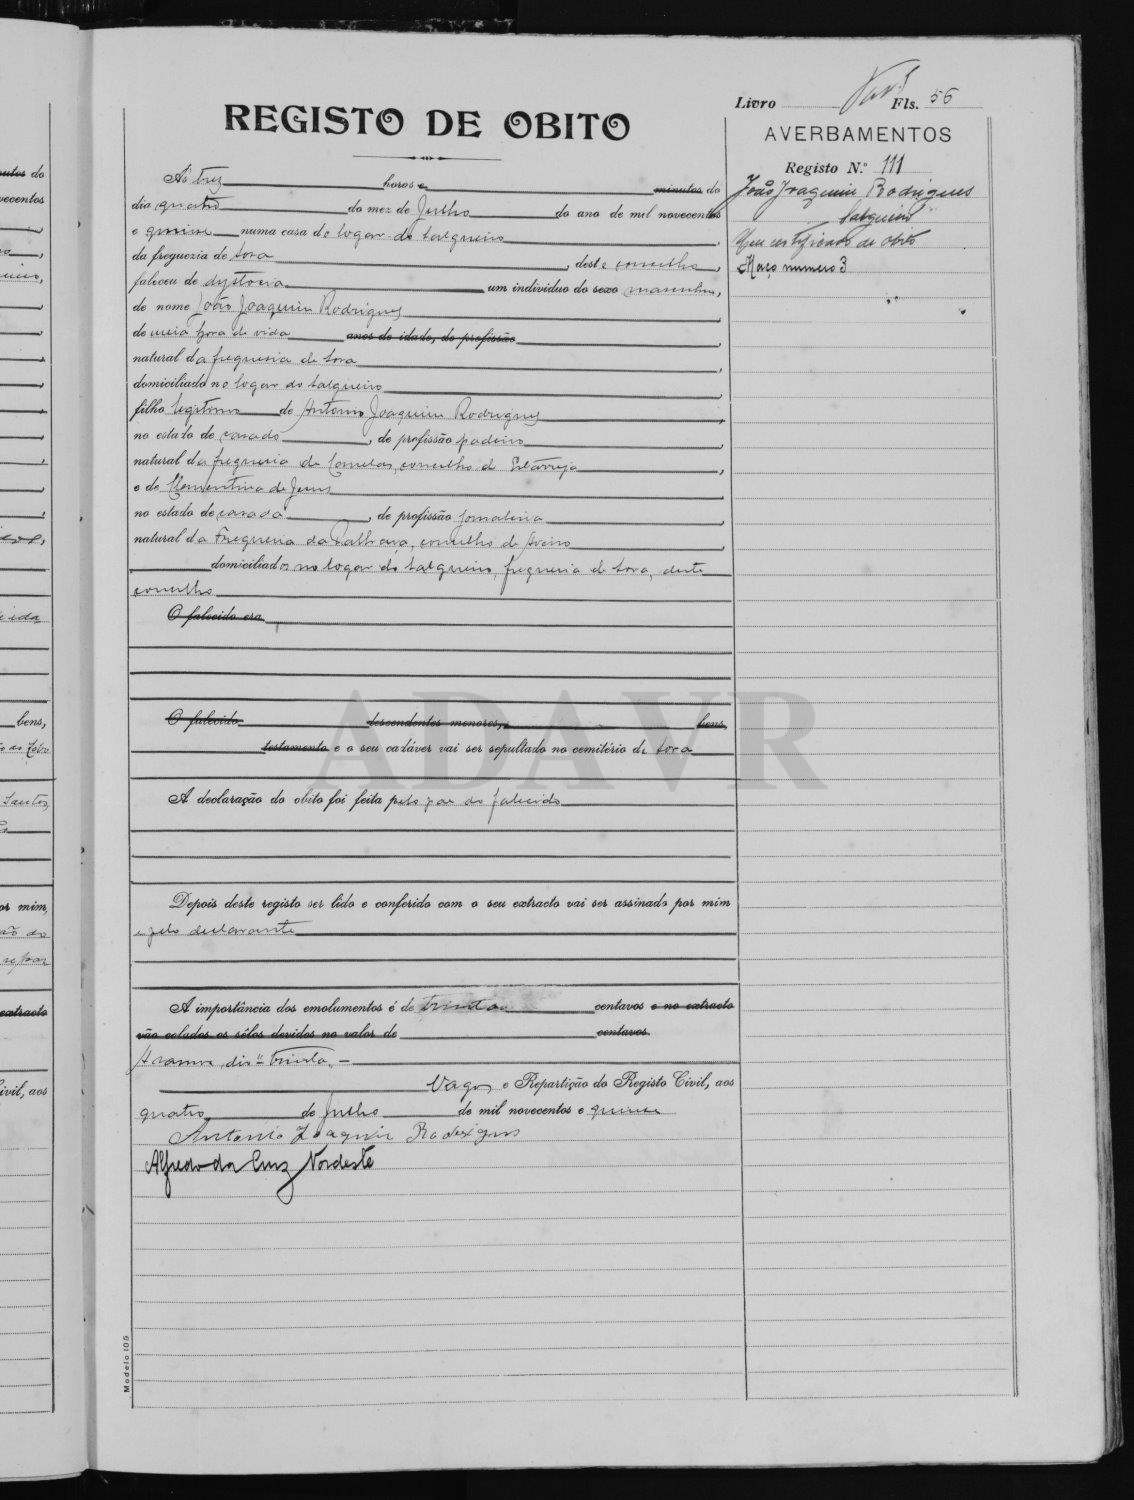 Livro Fls. 56
REGISTO DE OBITO
AVERBAMENTOS
Registo N.º 111
João Joaquim Rodrigues
Salgueiro
certificado de obito
Maço numero 3
Ás trez horas e minutos do
dia quatro do mez de Julho do ano de mil novecentos
e quinze numa casa do logar do Salgueiro,
da freguezia de Soza, deste concelho,
faleceu de dystocia um individuo do sexo masculino,
de nome João Joaquim Rodrigues,
de meia hora de vida anos de idade, de profissão,
natural da freguesia de Soza,
domiciliado no logar do Salgueiro,
filho legitimo de Antonio Joaquim Rodrigues,
no estado de casado, de profissão padeiro,
natural da freguesia de Canelas, concelho d'Estarreja,
e de Clementina de Jesus,
no estado de casada, de profissão jornaleira,
natural da Freguesia da Palhaça, concelho de Aveiro,
domiciliados no logar do Salgueiro, freguesia de Soza, deste
concelho
O falecido era
O falecido descendentes menores, bens,
testamento e o seu cadáver vai ser sepultado no cemitério de Soza
A declaração do obito foi feita pelo pae do falecido
Depois deste registo ser lido e conferido com o seu extracto vai ser assinado por mim
e pelo declarante
A importância dos emolumentos é de trinta centavos e no extracto
vão colados os sêlos devidos no valor de centavos.
trinta. —
Vagos e Repartição do Registo Civil, aos
quatro de Julho de mil novecentos e quinze
Antonio Joaquim Rodrigues
Alfredo da Cruz Nordeste
Modelo 105
ADAVR